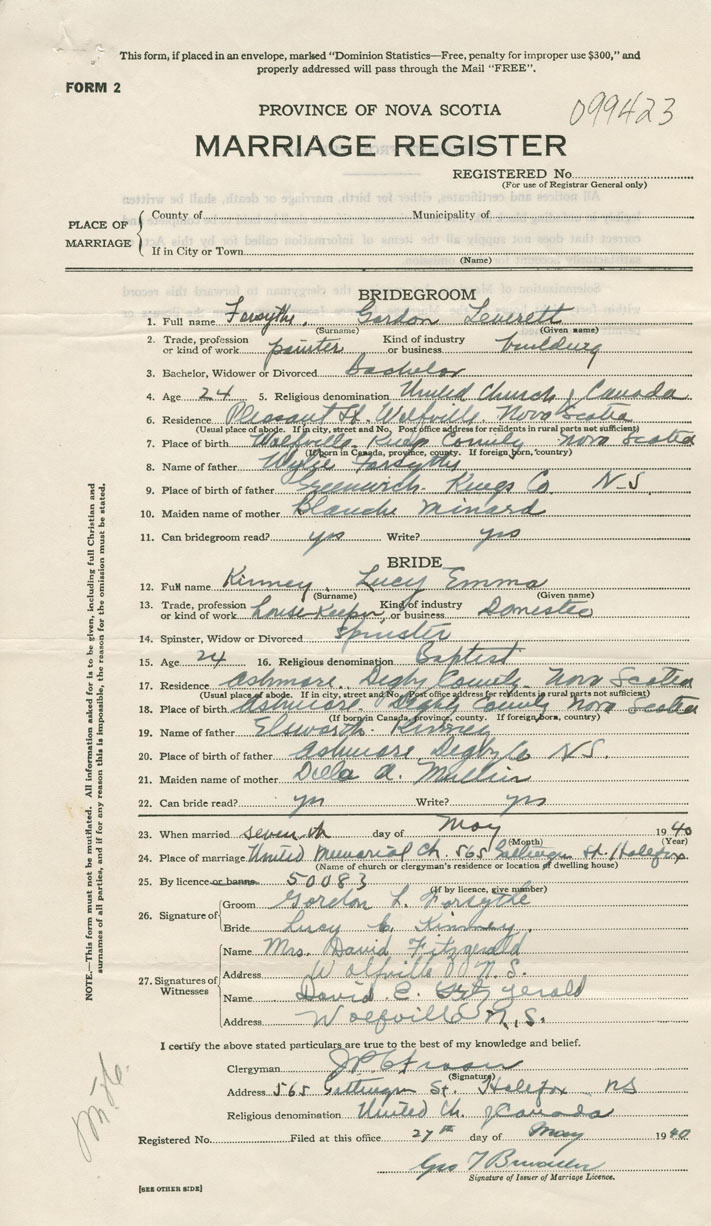 This form, if placed in an envelope, marked "Dominion Statistics—Free, penalty for improper use $300," and
properly addressed will pass through the Mail "FREE".
FORM 2
099423
PROVINCE OF NOVA SCOTIA
MARRIAGE REGISTER
REGISTERED No.
(For use of Registrar General only)
PLACE OF MARRIAGE
County of Municipality of
If in City or Town
(Name)
BRIDEGROOM
1. Full name Forsythe, Gordon Leverett
(Surname) (Given name)
2. Trade, profession or kind of work painter Kind of industry or business building
3. Bachelor, Widower or Divorced Bachelor
4. Age 24 5. Religious denomination United Church of Canada
6. Residence Pleasant St. Wolfville Nova Scotia
(Usual place of abode. If in city, street and No. Post office address for residents in rural parts not sufficient)
7. Place of birth Wolfville Kings County Nova Scotia
(If born in Canada, province, county. If foreign born, country)
8. Name of father Forsythe
9. Place of birth of father Greenwich Kings Co N-S
10. Maiden name of mother Blanche Minard
11. Can bridegroom read? yes Write? yes
BRIDE
12. Full name Kinney, Lucy Emma
(Surname) (Given name)
13. Trade, profession or kind of work house-keeper Kind of industry or business Domestic
14. Spinster, Widow or Divorced Spinster
15. Age 24 16. Religious denomination Baptist
17. Residence Ashmore, Digby County Nova Scotia
(Usual place of abode. If in city, street and No. Post office address for residents in rural parts not sufficient)
18. Place of birth Ashmore Digby County Nova Scotia
(If born in Canada, province, county. If foreign born, country)
19. Name of father Elsworth Kinney
20. Place of birth of father Ashmore Digby Co N.S.
21. Maiden name of mother Della A. Mullin
22. Can bride read? yes Write? yes
23. When married seventh day of May 1940
(Month) (Year)
24. Place of marriage United Memorial Ch. 565 Gottingen St. Halifax
(Name of church or clergyman's residence or location of dwelling house)
25. By licence or banns 50083
(If by licence, give number)
26. Signature of
Groom Gordon L. Forsythe
Bride Lucy E. Kinney
27. Signatures of Witnesses
Name Mrs. David Fitzgerald
Address Wolfville N.S.
Name David E. Fitzgerald
Address Wolfville N.S.
I certify the above stated particulars are true to the best of my knowledge and belief.
Clergyman
(Signature)
Address 565 Gottingen St. Halifax NS
Religious denomination United Ch. of Canada
Registered No. Filed at this office 27th day of May 1940
Geo
Signature of Issuer of Marriage Licence.
[SEE OTHER SIDE]
NOTE.—This form must not be mutilated. All information asked for is to be given, including full Christian and
surnames of all parties, and if for any reason this is impossible, the reason for the omission must be stated.